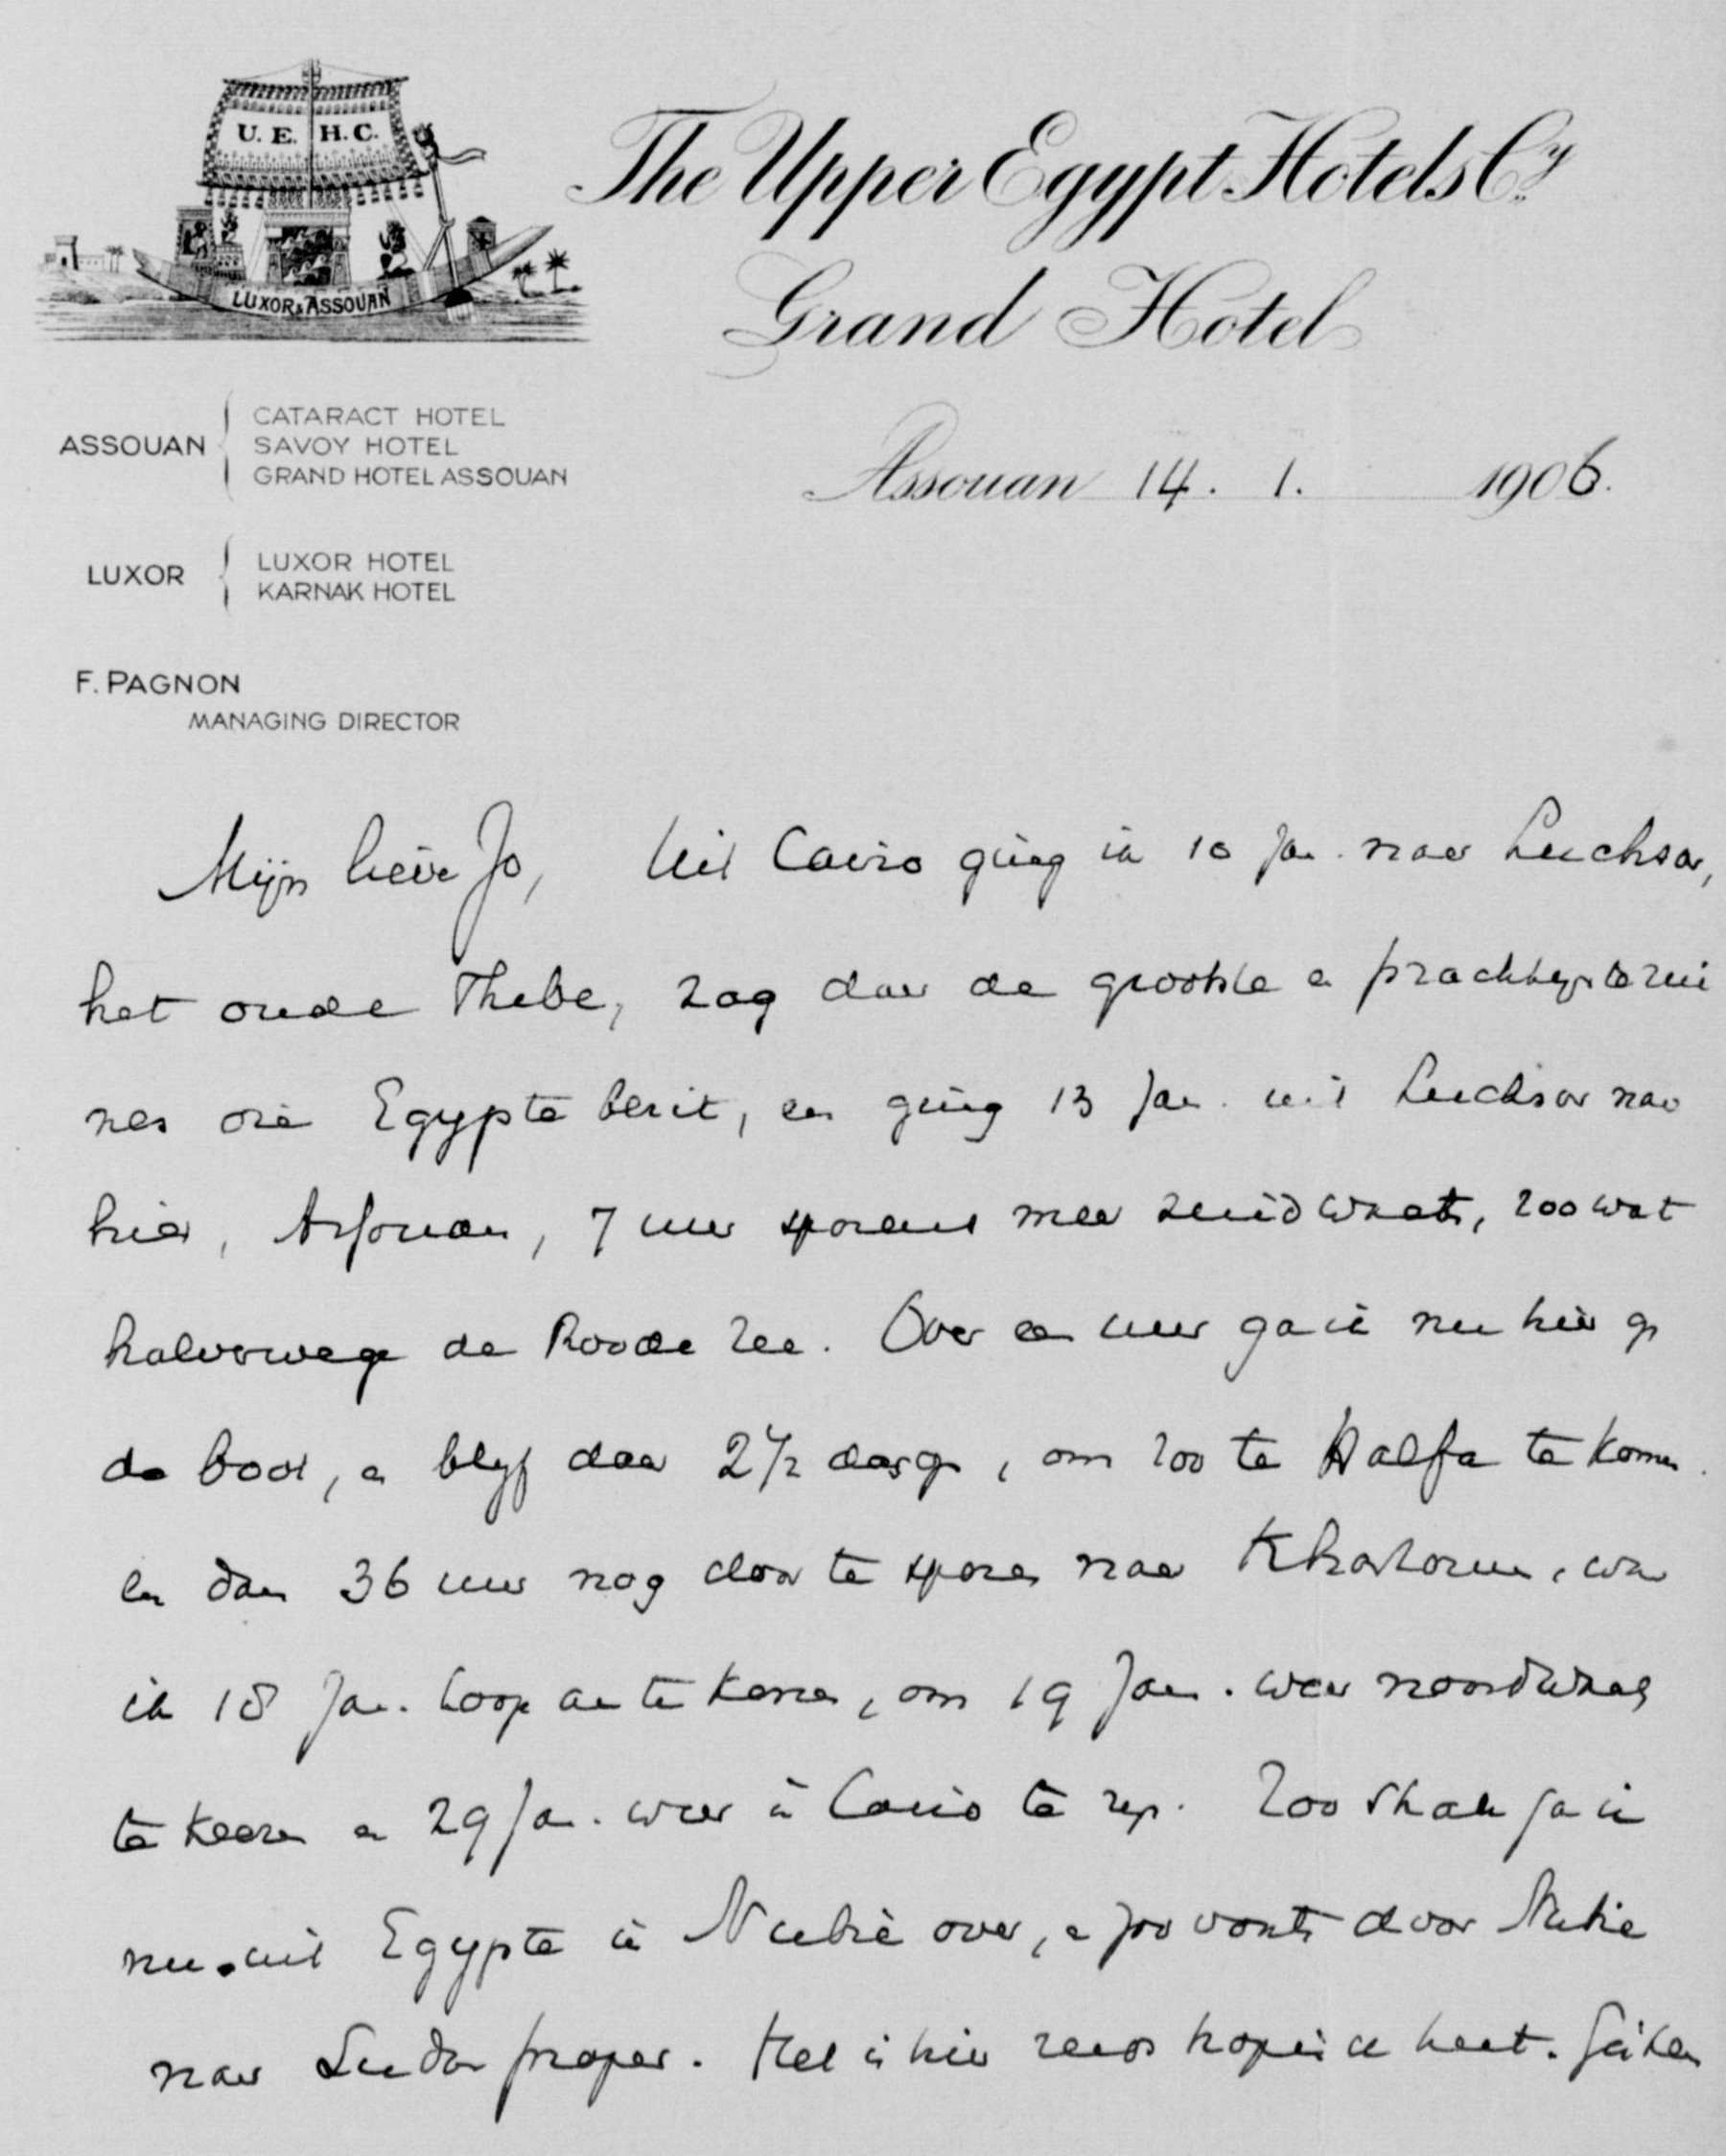 U. E. H. C.
LUXOR & ASSOUAN
The Upper Egypt Hotels Cy.
Grand Hotel
ASSOUAN
CATARACT HOTEL
SAVOY HOTEL
GRAND HOTEL ASSOUAN
Assouan 14. 1. 1906.
LUXOR
LUXOR HOTEL
KARNAK HOTEL
F. PAGNON
MANAGING DIRECTOR
Mijn lieve Jo, Uit Cairo ging ik 10 Jan. naar Luchsor,
het oude Thebe, zag daar de grootste en prachtigste rui
nes die Egypte bezit, en ging 13 Jan. uit Luchsor naar
hier, Assouan, 7 uur sporens meer zuidwaats, zoo wat
halverwege de Roode Zee. Over een uur ga ik nu hier op
de boot, en blyf daar 2 1/2 dag op, om zoo te Halfa te komen
en dan 36 uur nog door te sporen naar Khartoum, waar
ik 18 Jan. hoop aan te komen, om 19 Jan. weer noordwaats
te keeren en 29 Jan. weer in Cairo te zyn. Zoo ga ik
nu uit Egypte in Nubië over, en door Nubie
naar Sudan proper. Het is hier reeds heet.